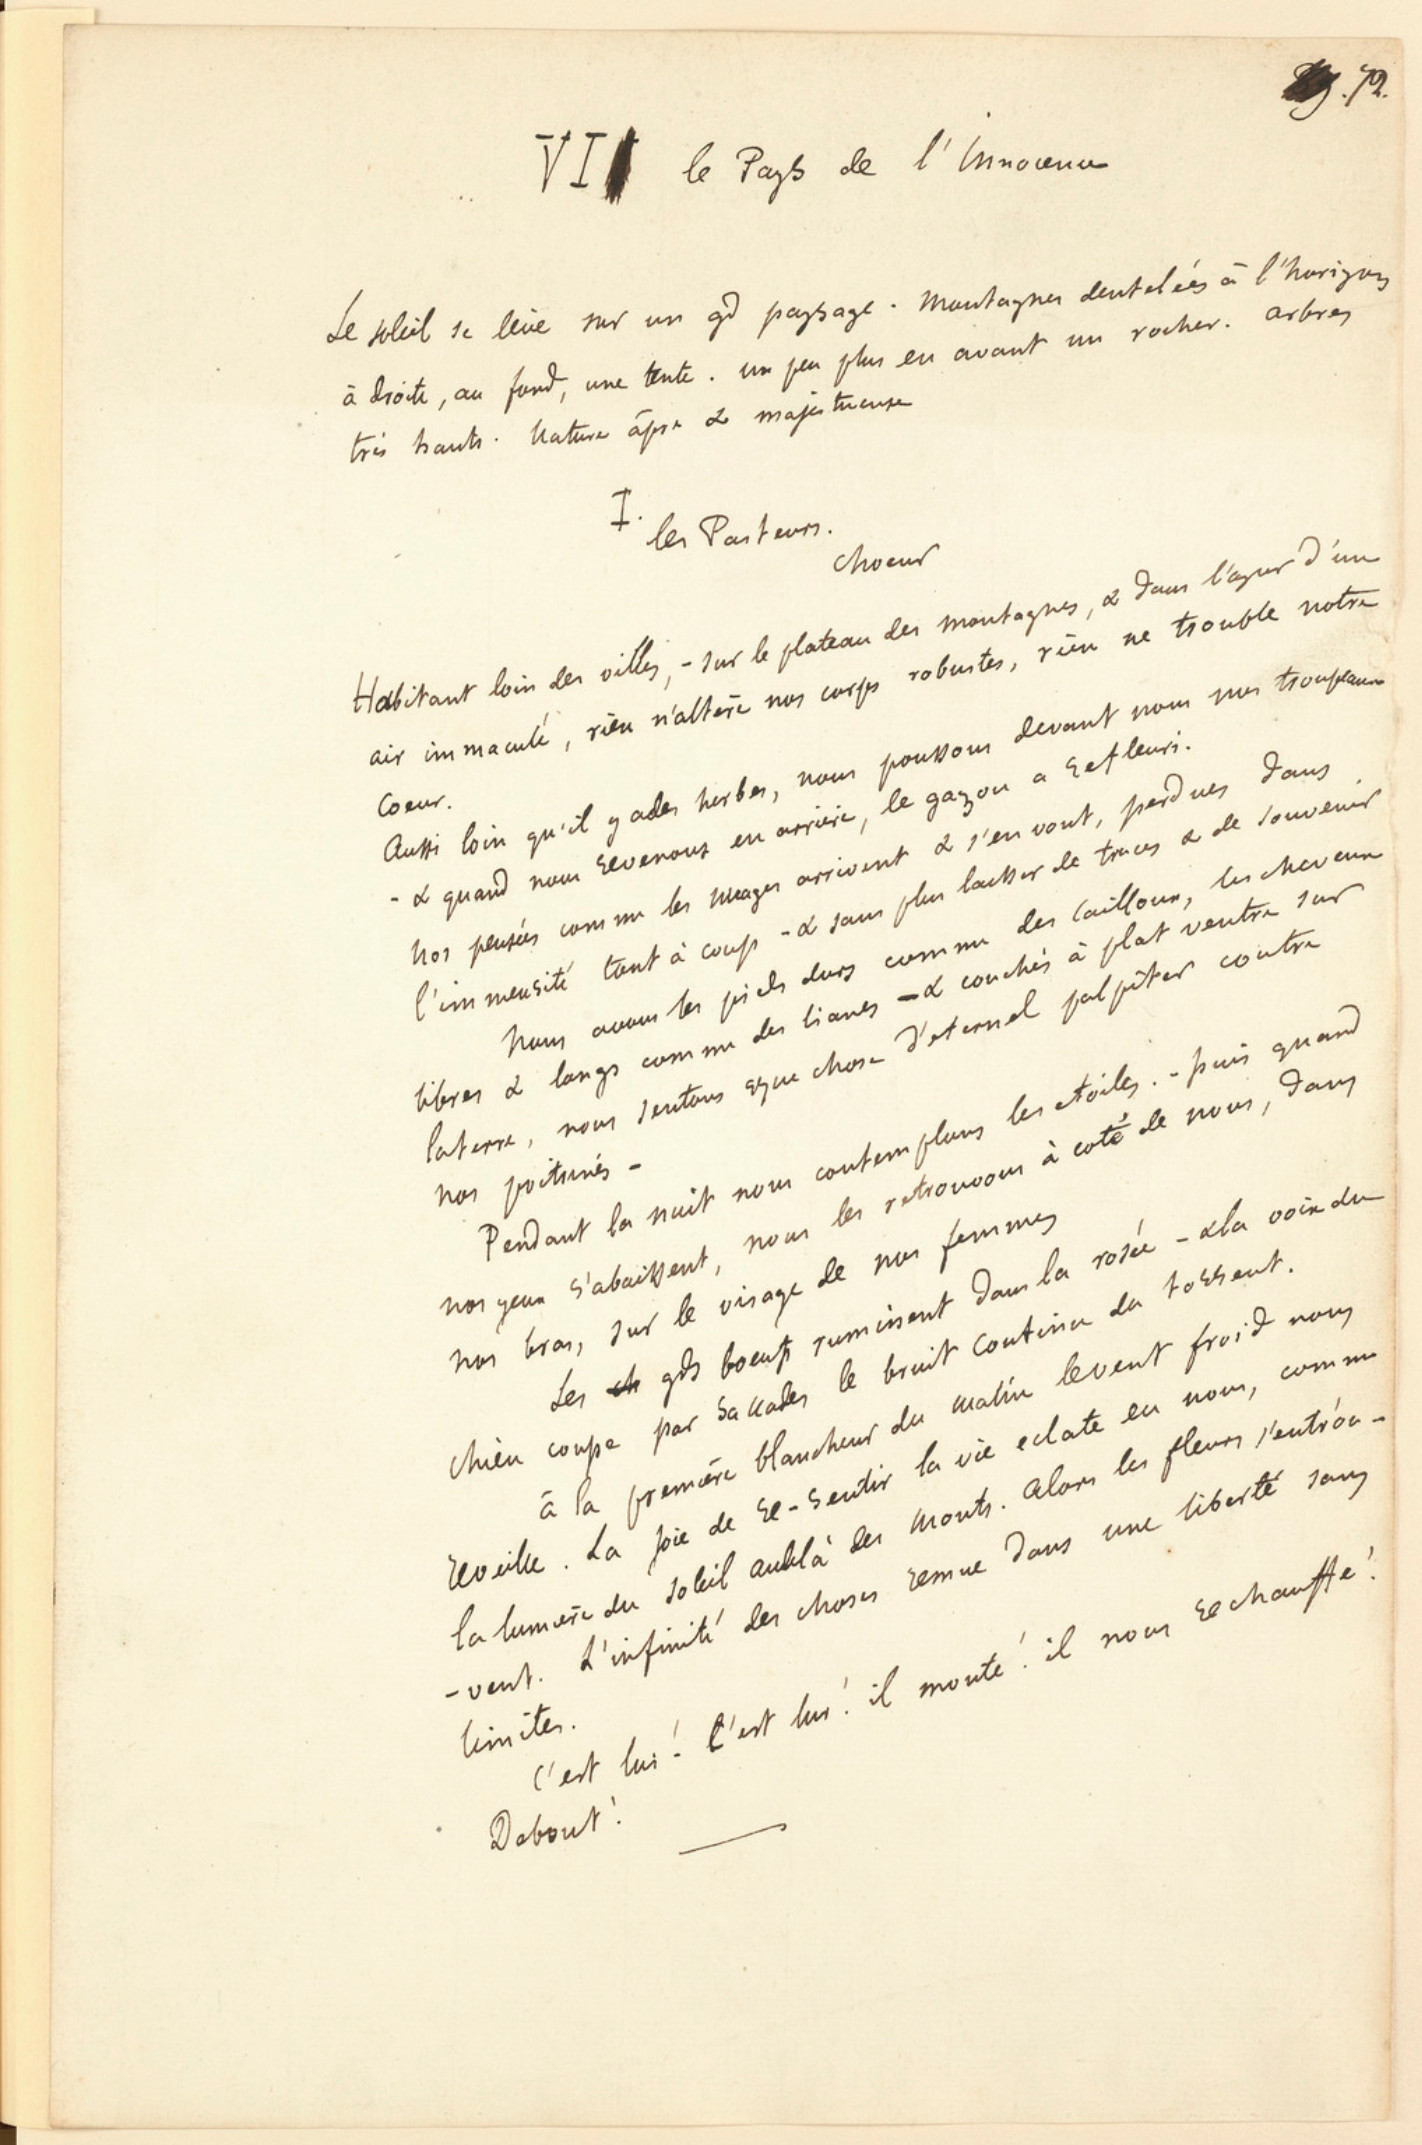 . 72.
VI le Pays de l'Innocence
Le soleil se lève sur un gd paysage. Montagnes dentelées à l'horizon
à droite, au fond, une tente. un peu plus en avant un rocher. arbres
très hauts. Nature âpre & majestueuse
I.
les Pasteurs.
choeur
Habitant loin des villes, - sur le plateau des montagnes, & dans l'azur d'un
air immaculé, rien n'altère nos corps robustes, rien ne trouble notre
coeur.
Aussi loin qu'il y a des herbes, nous poussons devant nous nos troupeaux
- & quand nous revenons en arrière, le gazon a refleuri.
Nos pensées comme les nuages arrivent & s'en vont, perdues dans
l'immensité tout à coup - & sans plus laisser de traces & de souvenir
Nous avons les pieds durs comme des cailloux, les cheveux
libres & longs comme des lianes - & couchés à plat ventre sur
la terre, nous sentons qque chose d'eternel palpiter contre
nos poitrines -
Pendant la nuit nous contemplons les etoiles. - puis quand
nos yeux s'abaissent, nous les retrouvons à coté de nous, dans
nos bras, sur le visage de nos femmes
Les gds boeufs ruminent dans la rosée - & la voix du
chien coupe par saccades le bruit continu du torrent.
à la première blancheur du matin le vent froid nous
reveille. La joie de re-sentir la vie eclate en nous, comme
la lumière du soleil audelà des monts. Alors les fleurs s'entrou-
-vent. L'infinité des choses remue dans une liberté sans
limites.
C'est lui! C'est lui! il monte! il nous rechauffe!
Debout!